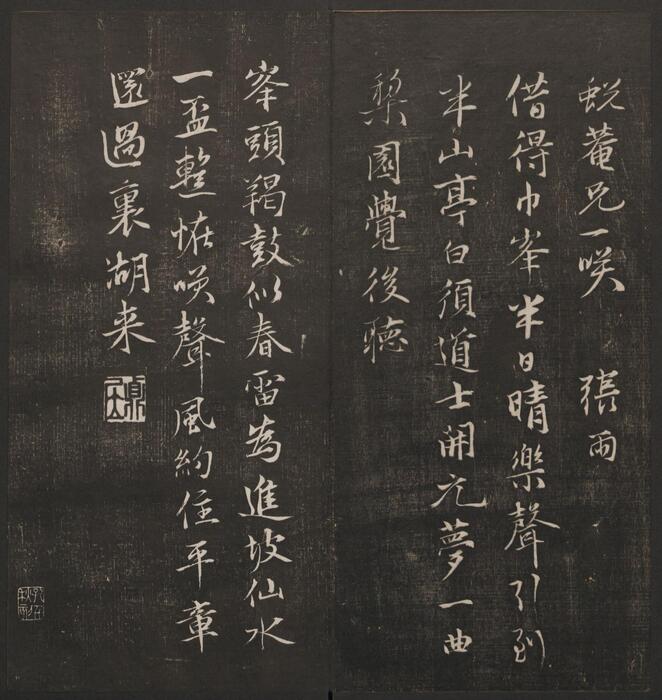 蛻菴兄一咲　張雨
借得巾峯半日晴樂聲引到
半山亭白須道士開元夢一曲
梨園覺後聽
峯頭羯鼓似春雷為進坡仙水
一盃輕恠咲聲風約住平章
還過裏湖来